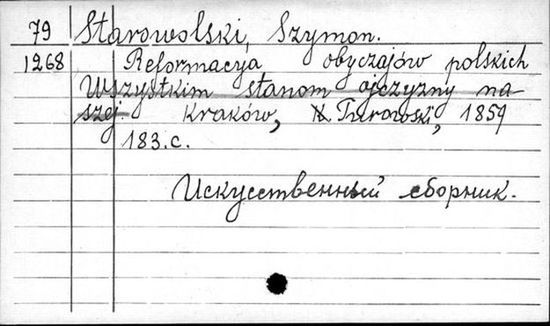 79 Starowolski, Szymon.
1268 Reformacya obyczajów polskich
Wszystkim stanom ojczyzny na-
szej Kraków, K. Turowski, 1859
183.c.
Искусственный сборник.